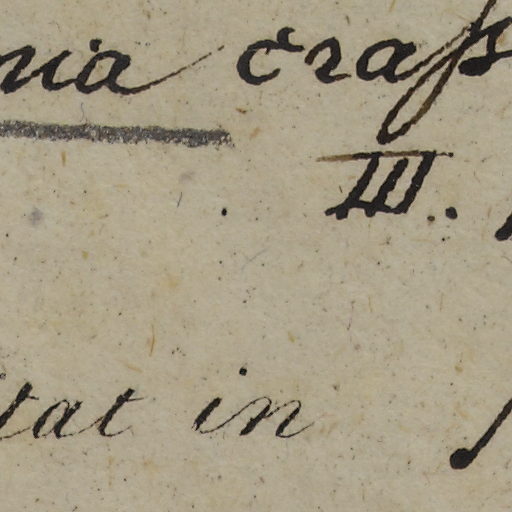 nia craſs
III.
itat in